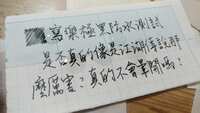 寫樂極黑防水測試
是否真的像是江湖傳說那
麼厲害？真的不會暈開嗎？